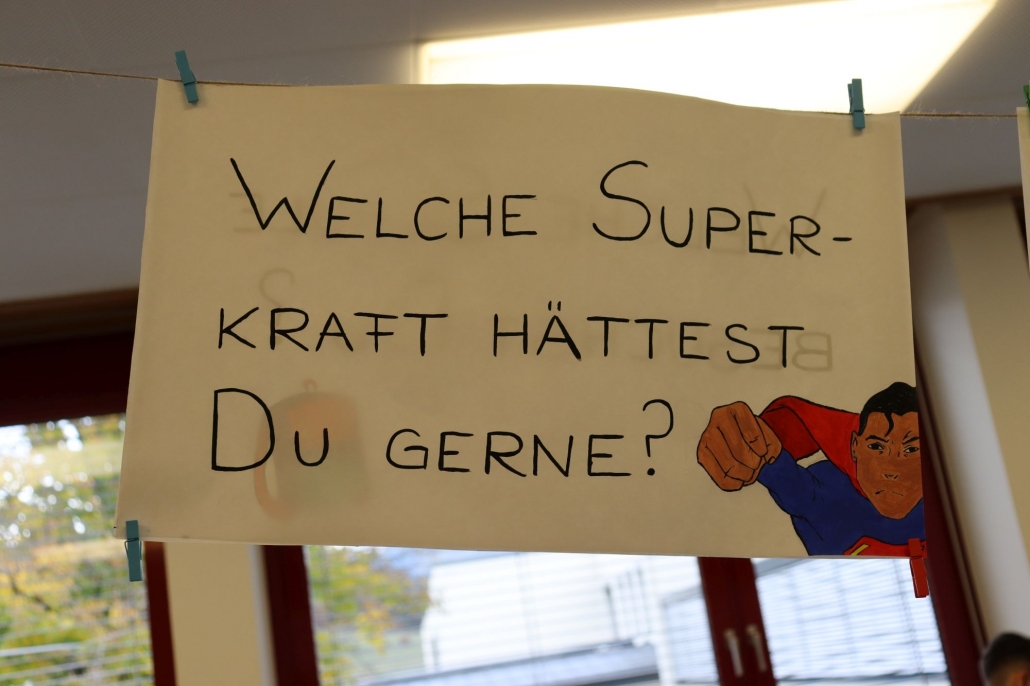 WELCHE SUPER-
KRAFT HÄTTEST
DU GERNE?